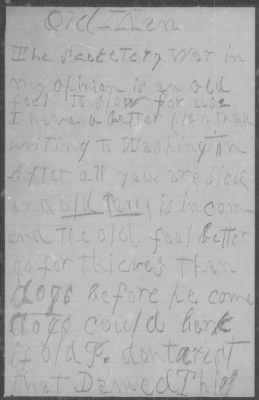 Old-Man
The Sacetery War in
my opinian is an old
fool To slow for use
I have a better plan than
writing to Washington
After all you are sick
and old Perry is in com
and The old fool better
go for thieves than
dogs before he come
dogs could bark
if old P. dont arest
that Damed Thief